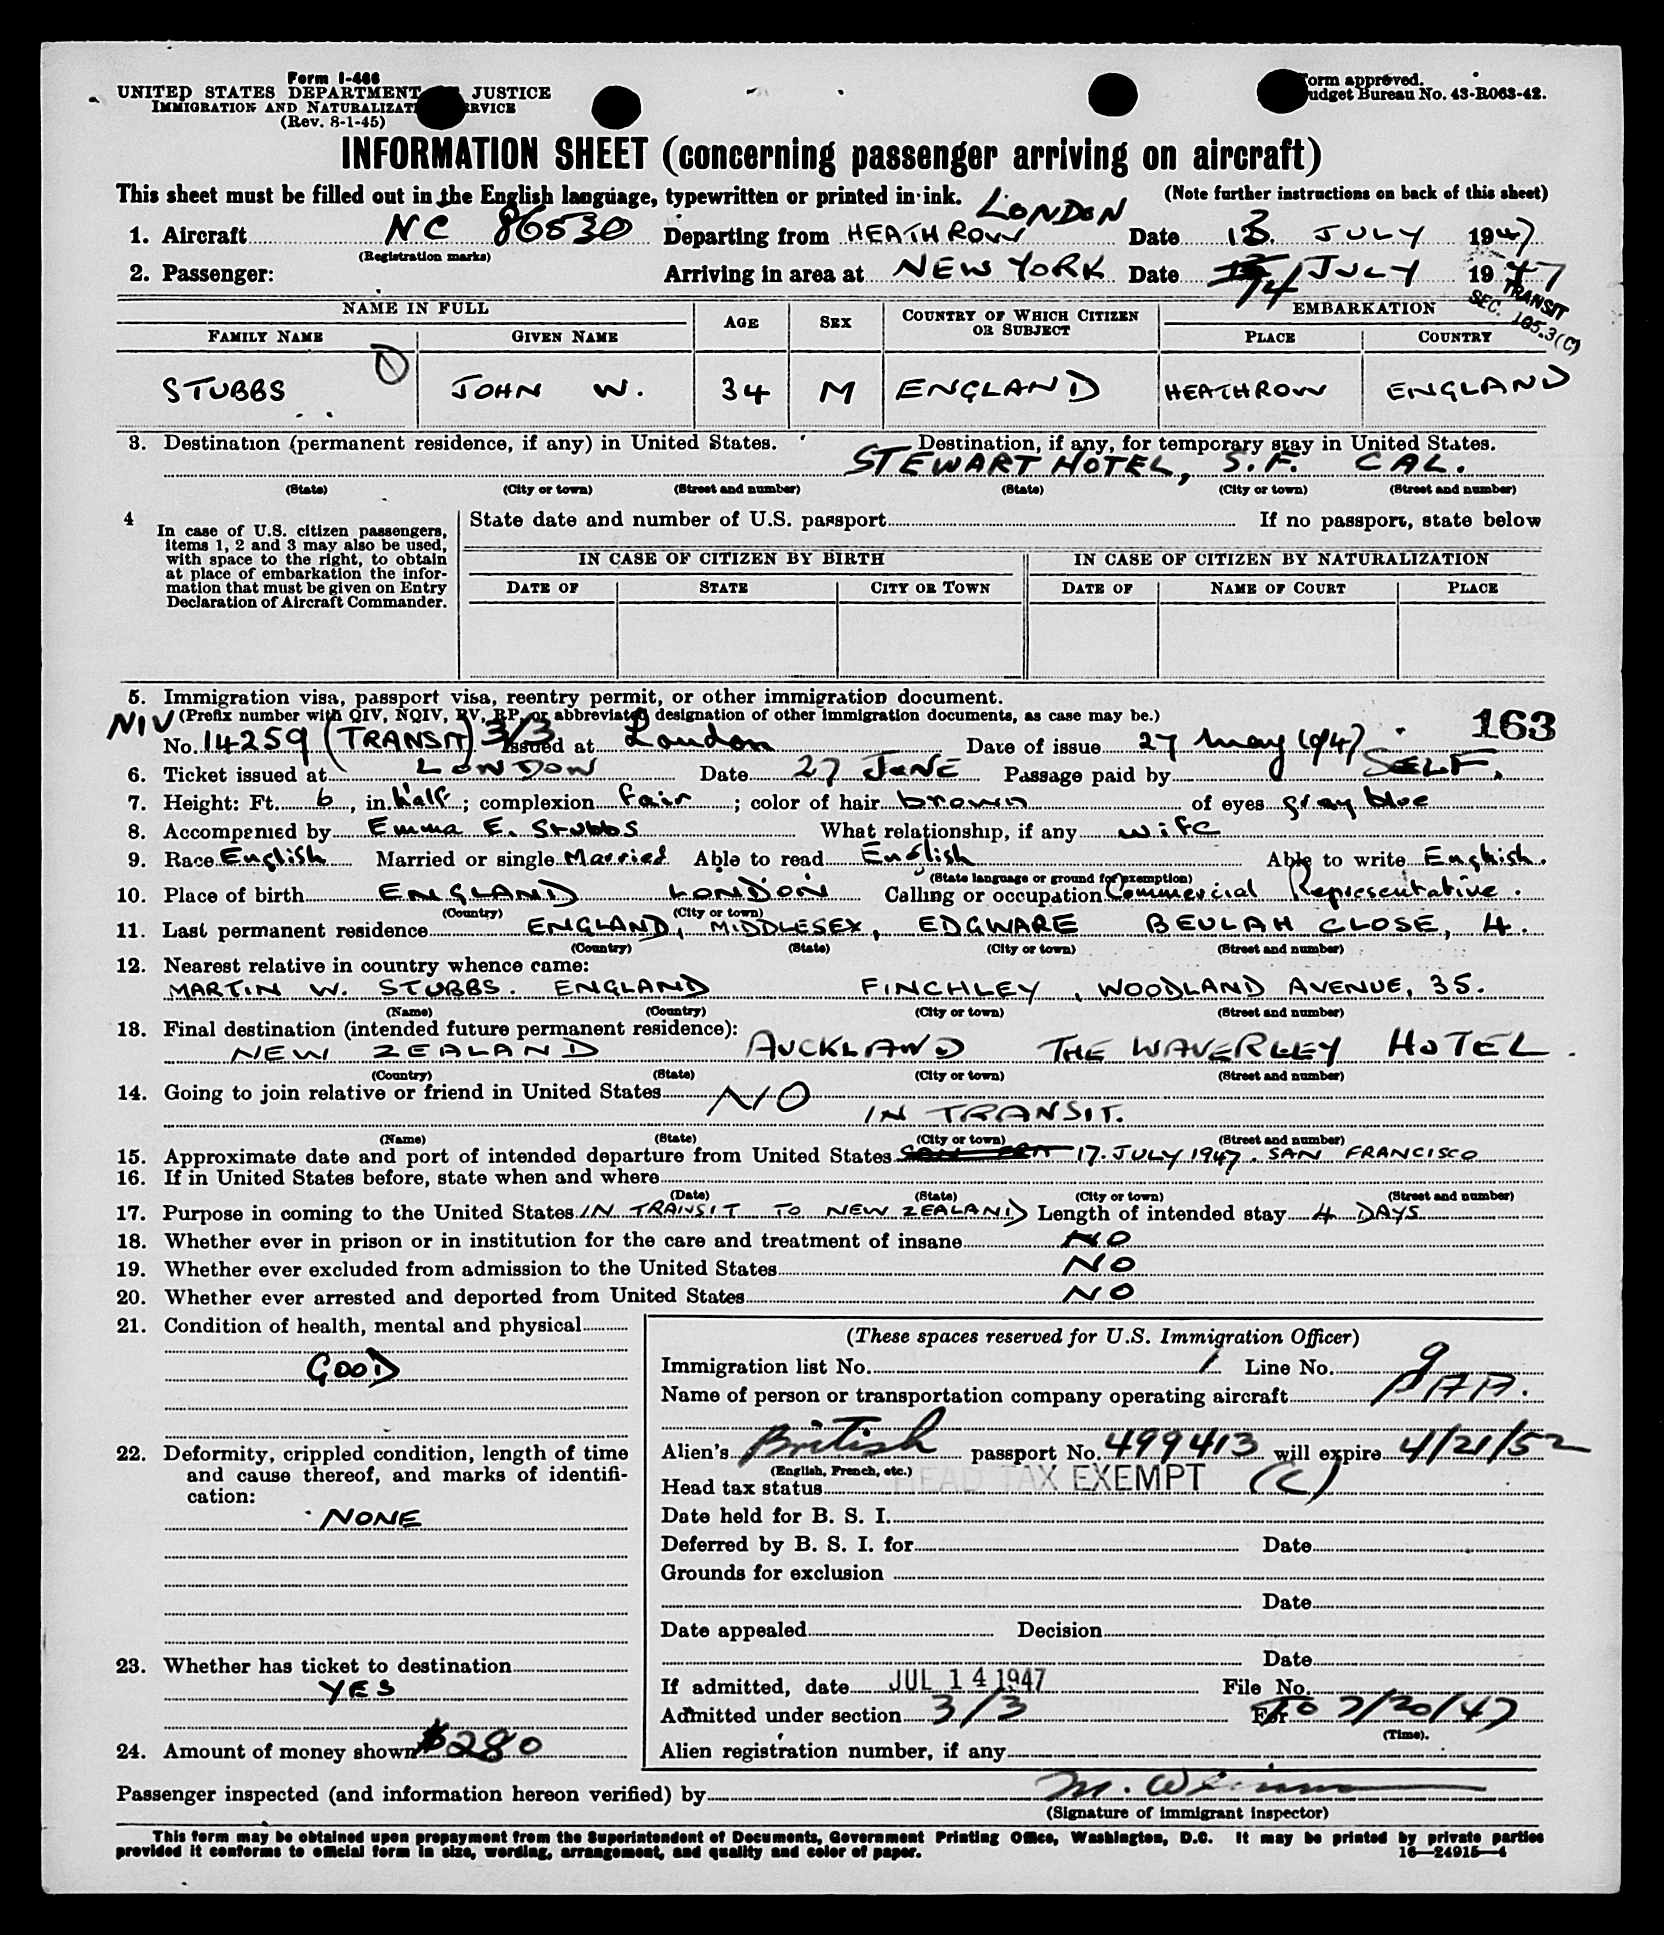 Form I-466
UNITED STATES DEPARTMENT JUSTICE
IMMIGRATION AND NATURALIZATI ERVICE
(Rev. 8-1-45)
Form approved.
Budget Bureau No. 43-R063-42.
INFORMATION SHEET (concerning passenger arriving on aircraft)
This sheet must be filled out in the English language, typewritten or printed in ink. (Note further instructions on back of this sheet)
LONDON
1. Aircraft NC 86530 Departing from HEATHROW Date 13 JULY 1947
(Registration marks)
2. Passenger: Arriving in area at NEW YORK Date 14 JULY 1947
TRANSIT
SEC. 105.3(C)
NAME IN FULL AGE SEX COUNTRY OF WHICH CITIZEN OR SUBJECT EMBARKATION
FAMILY NAME GIVEN NAME PLACE COUNTRY
STUBBS JOHN W. 34 M ENGLAND HEATHROW ENGLAND
3. Destination (permanent residence, if any) in United States. Destination, if any, for temporary stay in United States.
STEWART HOTEL, S.F. CAL.
(State) (City or town) (Street and number) (State) (City or town) (Street and number)
4 In case of U.S. citizen passengers,
items 1, 2 and 3 may also be used,
with space to the right, to obtain
at place of embarkation the infor-
mation that must be given on Entry
Declaration of Aircraft Commander.
State date and number of U.S. passport If no passport, state below
IN CASE OF CITIZEN BY BIRTH IN CASE OF CITIZEN BY NATURALIZATION
DATE OF STATE CITY OR TOWN DATE OF NAME OF COURT PLACE
5. Immigration visa, passport visa, reentry permit, or other immigration document.
NIV (Prefix number with QIV, NQIV, RV, RP, or abbreviated designation of other immigration documents, as case may be.)
163
No. 14259 (TRANSIT) 3/3 Issued at London Date of issue 27 May 1947
6. Ticket issued at LONDON Date 27 JUNE Passage paid by SELF.
7. Height: Ft. 6, in. half; complexion fair; color of hair brown of eyes gray blue
8. Accompenied by Emma E. Stubbs What relationship, if any wife
9. Race English Married or single Married Able to read English Able to write English.
(State language or ground for exemption)
10. Place of birth ENGLAND LONDON Calling or occupation Commercial Representative.
(Country) (City or town)
11. Last permanent residence ENGLAND, MIDDLESEX, EDGWARE BEULAH CLOSE, 4.
(Country) (State) (City or town) (Street and number)
12. Nearest relative in country whence came:
MARTIN W. STUBBS. ENGLAND FINCHLEY, WOODLAND AVENUE, 35.
(Name) (Country) (City or town) (Street and number)
13. Final destination (intended future permanent residence):
NEW ZEALAND AUCKLAND THE WAVERLEY HOTEL.
(Country) (State) (City or town) (Street and number)
14. Going to join relative or friend in United States NO
IN TRANSIT.
(Name) (State) (City or town) (Street and number)
15. Approximate date and port of intended departure from United States 17. JULY 1947. SAN FRANCISCO
16. If in United States before, state when and where
(Date) (State) (City or town) (Street and number)
17. Purpose in coming to the United States IN TRANSIT TO NEW ZEALAND Length of intended stay 4 DAYS
18. Whether ever in prison or in institution for the care and treatment of insane NO
19. Whether ever excluded from admission to the United States NO
20. Whether ever arrested and deported from United States NO
21. Condition of health, mental and physical
GOOD
22. Deformity, crippled condition, length of time
and cause thereof, and marks of identifi-
cation:
NONE
23. Whether has ticket to destination
YES
24. Amount of money shown $280
(These spaces reserved for U.S. Immigration Officer)
Immigration list No. 1 Line No. 9
Name of person or transportation company operating aircraft PAA.
Alien's British passport No. 499413 will expire 4/21/52
(English, French, etc.)
Head tax status HEAD TAX EXEMPT (C)
Date held for B. S. I.
Deferred by B. S. I. for Date
Grounds for exclusion
Date
Date appealed Decision
Date
If admitted, date JUL 14 1947 File No.
Admitted under section 3/3 For TO 7/20/47
(Time).
Alien registration number, if any
Passenger inspected (and information hereon verified) by M.
(Signature of immigrant inspector)
This form may be obtained upon prepayment from the Superintendent of Documents, Government Printing Office, Washington, D.C. It may be printed by private parties
provided it conforms to official form in size, wording, arrangement, and quality and color of paper. 16—24915—4